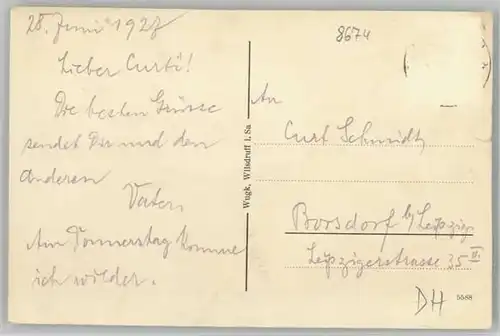 28. Juni 1927
Lieber Curti!
Die besten Grüsse
sendet Dir und den
anderen
Vater.
Am Donnerstag komme
ich wieder.
Wugk, Wilsdruff i. Sa
8674
An
Curt Schmidt
Borsdorf b/Leipzig
Leipzigerstrasse 35 II.
DH
5588